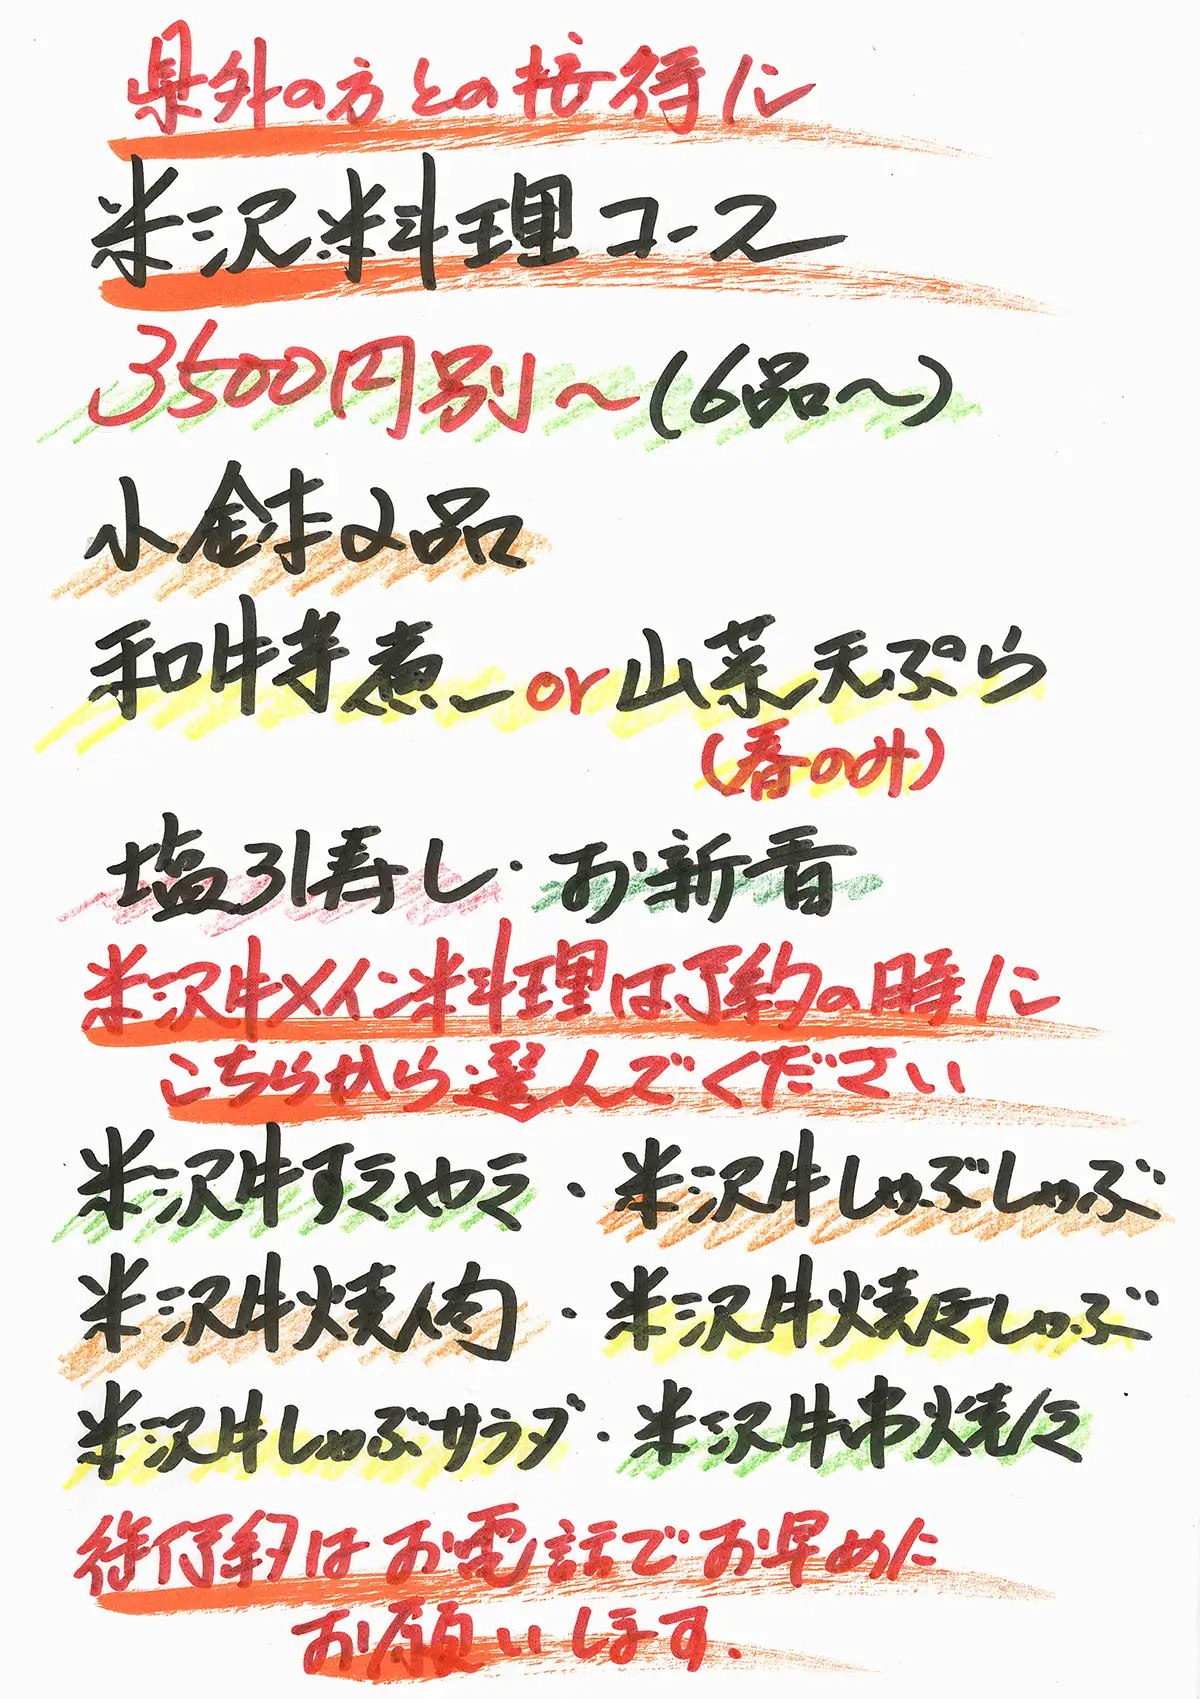 県外の方との接待に
米沢料理コース
3500円別～(6品～)
小鉢2品
和牛芋煮 or 山菜天ぷら
(春のみ)
塩引寿し・お新香
米沢牛メイン料理は予約の時に
こちらから選んでください
米沢牛すきやき・米沢牛しゃぶしゃぶ
米沢牛焼肉・米沢牛焼きしゃぶ
米沢牛しゃぶサラダ・米沢牛串焼き
御予約はお電話でお早めに
お願いします.